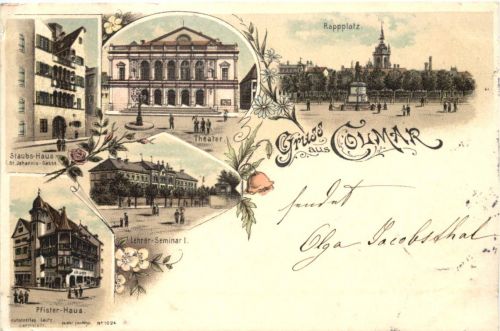 Rappplatz.
Staubs-Haus
St. Johannis-Gasse
Theater
Gruss
aus
COLMAR
Lehrer-Seminar I.
sendet
Olga Jacobsthal
Pfister-Haus.
No 1024